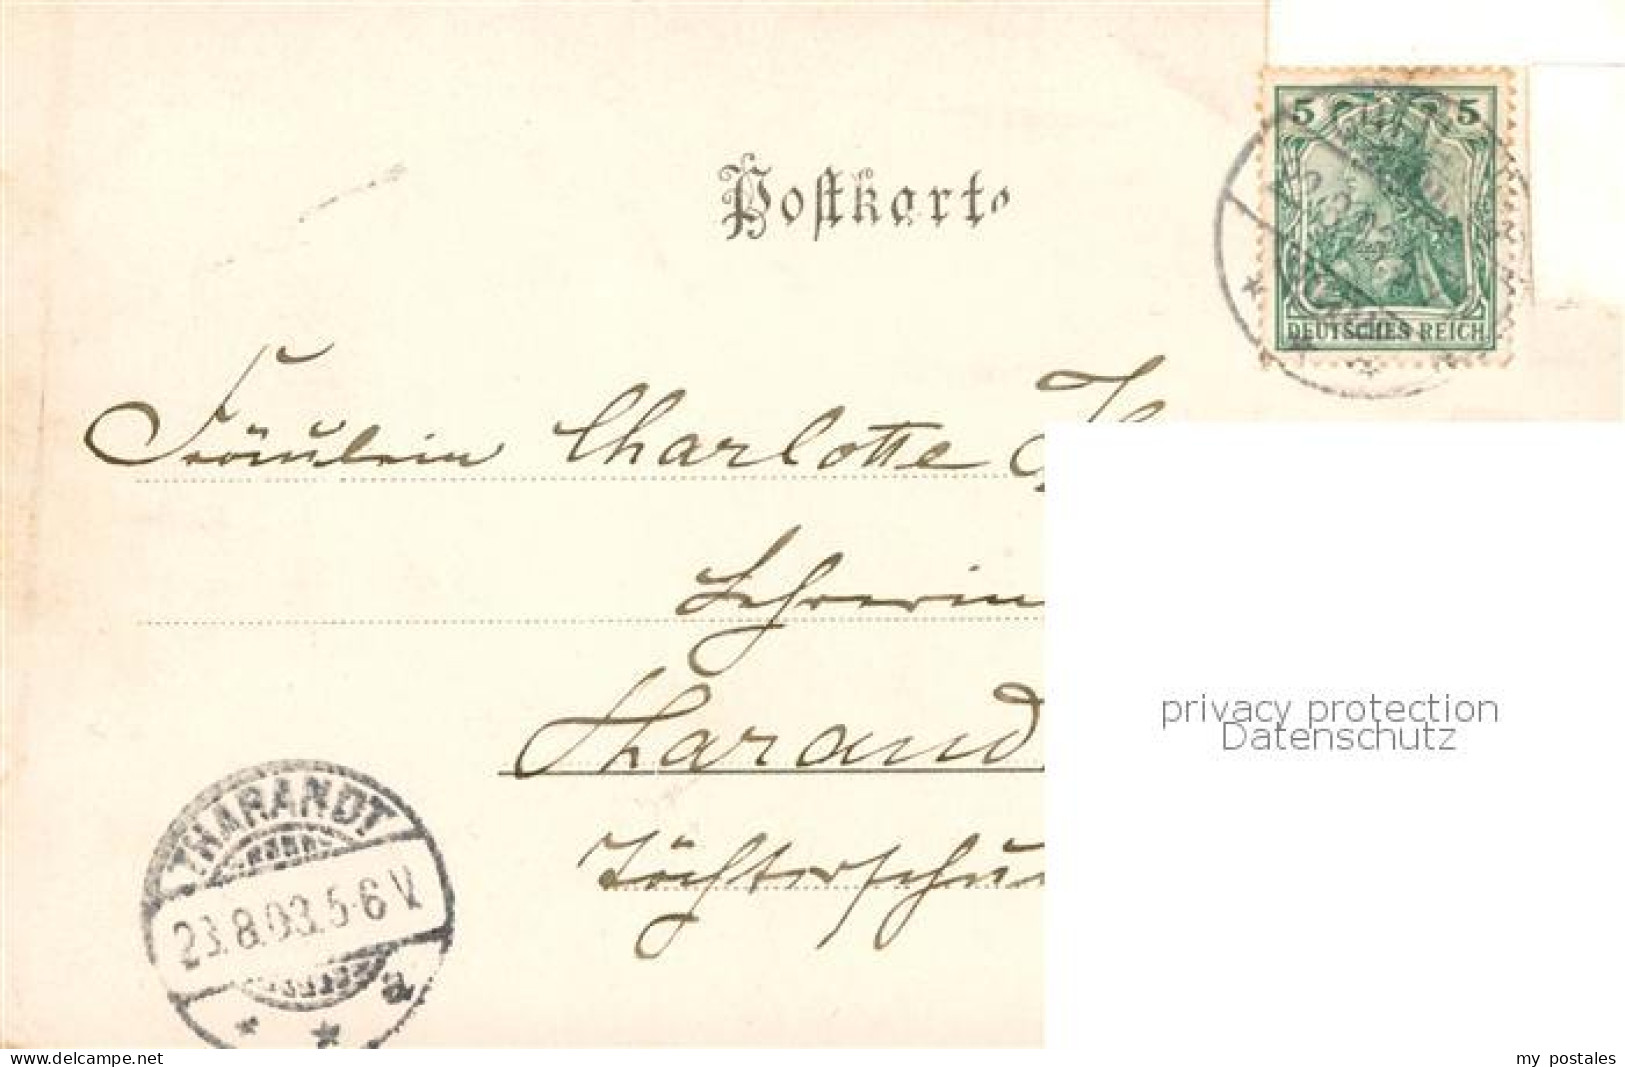 Postkarte
5 5
DEUTSCHES REICH
Fräulein Charlotte
Lehrerin
Tharand
Töchterschu
THARANDT
23.8.03.5-6 V.
a
privacy protection
Datenschutz
www.delcampe.net
my postales